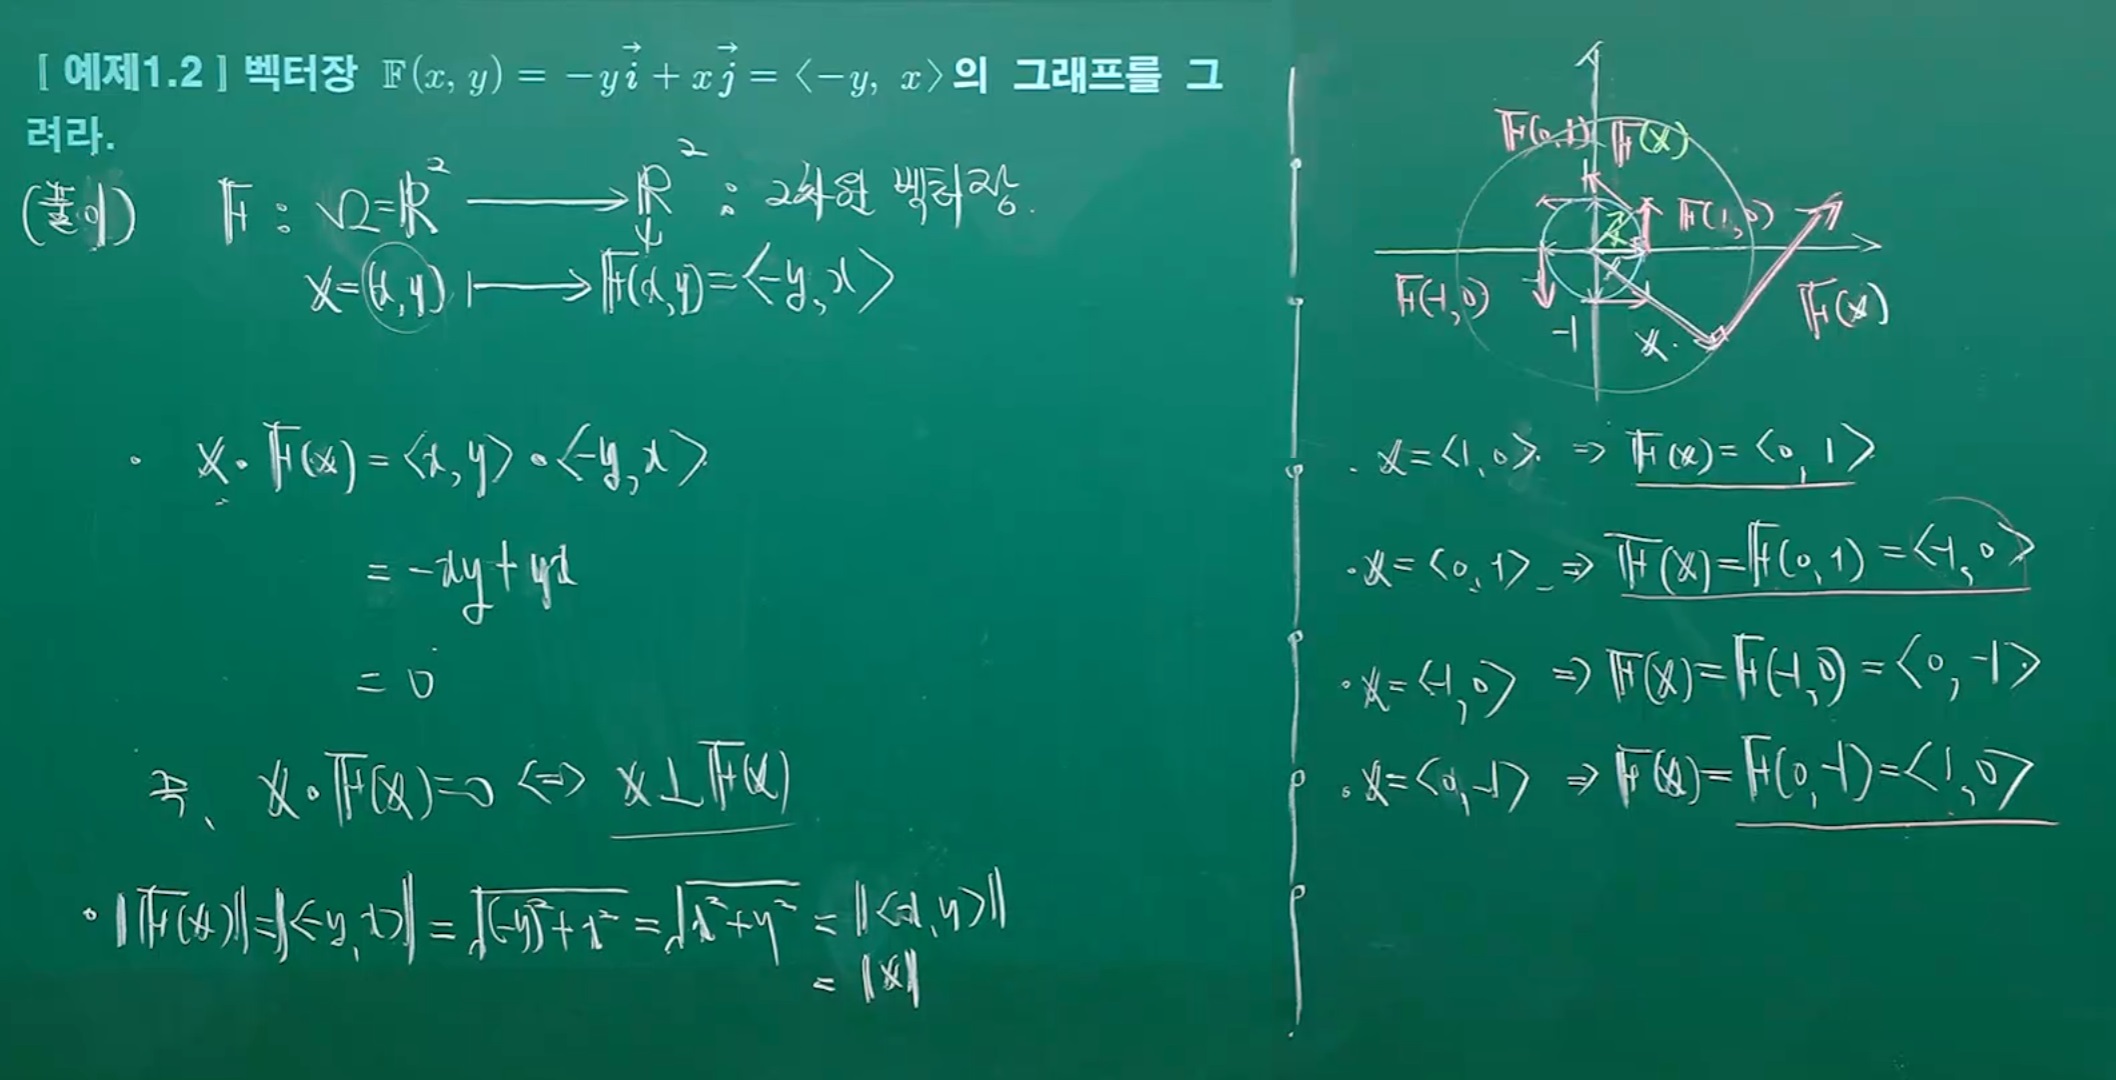 [ 예제1.2 ] 벡터장 𝔽(x, y) = -y i⃗ + x j⃗ = ⟨-y, x⟩의 그래프를 그
려라.
(풀이) 𝔽 : Ω=ℝ² ⟶ ℝ² : 2차원 벡터장.
𝕏=(x,y) ⟼ 𝔽(x,y)=⟨-y,x⟩
· 𝕏·𝔽(𝕏)=⟨x,y⟩·⟨-y,x⟩
= -xy+yx
= 0
즉, 𝕏·𝔽(𝕏)=0 ⟺ 𝕏⊥𝔽(𝕏)
· ‖𝔽(𝕏)‖=‖⟨-y,x⟩‖=√((-y)²+x²)=√(x²+y²)=‖⟨x,y⟩‖
= ‖𝕏‖
𝔽(0,1) 𝔽(𝕏)
1
𝔽(1,0)
𝔽(-1,0) 𝔽(𝕏)
-1 𝕏
· 𝕏=⟨1,0⟩. ⇒ 𝔽(𝕏)=⟨0,1⟩
· 𝕏=⟨0,1⟩ ⇒ 𝔽(𝕏)=𝔽(0,1)=⟨-1,0⟩
· 𝕏=⟨-1,0⟩ ⇒ 𝔽(𝕏)=𝔽(-1,0)=⟨0,-1⟩
· 𝕏=⟨0,-1⟩ ⇒ 𝔽(𝕏)=𝔽(0,-1)=⟨1,0⟩